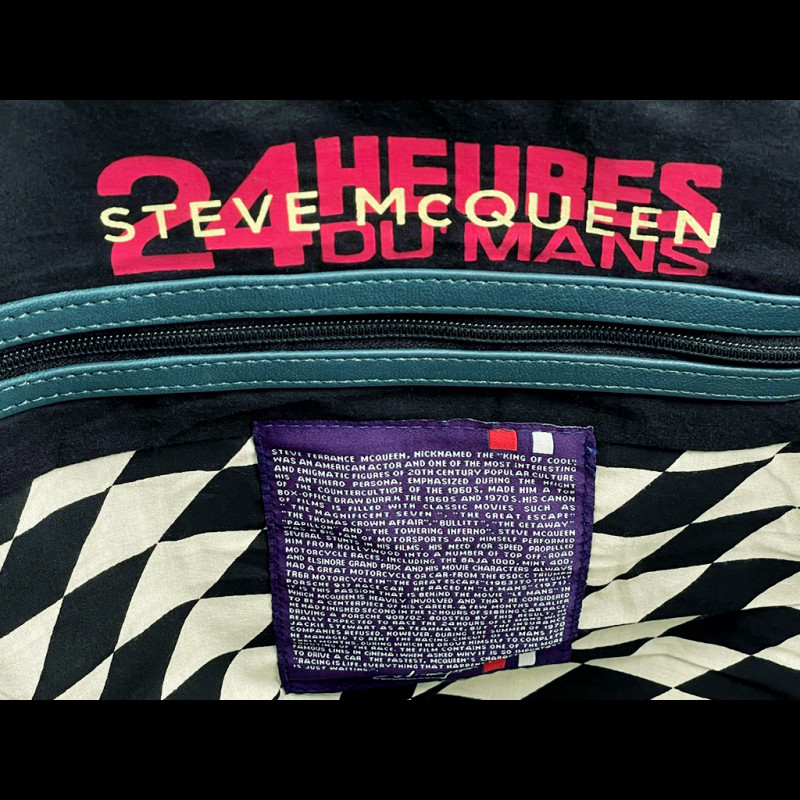 24 HEURES
DU MANS
STEVE MCQUEEN
STEVE TERRANCE MCQUEEN, NICKNAMED THE "KING OF COOL"
WAS AN AMERICAN ACTOR AND ONE OF THE MOST INTERESTING
AND ENIGMATIC FIGURES OF 20TH CENTURY POPULAR CULTURE
HIS ANTIHERO PERSONA, EMPHASIZED DURING THE HEIGHT
OF THE COUNTERCULTURE OF THE 1960S, MADE HIM A TOP
BOX-OFFICE DRAW THE 1960S AND 1970S. HIS CANON
OF FILMS IS FILLED WITH CLASSIC MOVIES SUCH AS
"THE MAGNIFICENT SEVEN", "THE GREAT ESCAPE"
"THOMAS CROWN AFFAIR", "BULLITT", "THE GETAWAY"
"PAPILLON" AND "THE TOWERING INFERNO". STEVE MCQUEEN
MOTORSPORTS AND HIMSELF PERFORMED
HIS FILMS. HIS NEED FOR SPEED PROPELLED
HIM FROM INTO A NUMBER OF TOP OFF-ROAD
MOTORCYCLE RACES, INCLUDING THE BAJA 1000, MINT 400,
AND ELSINORE GRAND PRIX AND HIS MOVIE CHARACTERS ALWAYS
HAD A GREAT MOTORCYCLE OR CAR-FROM THE 650CC TRIUMPH
TR6R MOTORCYCLE IN "THE GREAT ESCAPE"(1963) THE
PORSCHE 917 RACE CAR HE RACED IN "LE MANS"
IT IS THIS PASSION THAT IS BEHIND THE MOVIE "LE MANS" IN
WHICH MCQUEEN IS HEAVILY INVOLVED AND THAT HE CONSIDERED
TO BE A CENTERPIECE OF HIS CAREER. A FEW MONTHS EARLIER
HE HAD FINISHED SECOND IN THE 12 HOURS OF SEBRING
DRIVING A PORSCHE 908/02. BOOSTED BY THIS
REALLY EXPECTED TO RACE THE 24 HOURS OF
JACKIE STEWART AS A TEAMMATE,
COMPANIES REFUSED. HOWEVER, DURING THE LE MANS
MANAGED TO RENT THE RACING
DURING WHICH HE DROVE HIMSELF TO
FAMOUS THE RACE. THE FILM CONTAINS ONE OF THE
TO DRIVE A CAR IN CINEMA: WHEN ASKED WHY IT IS SO
THE FASTEST, MCQUEEN'S
"RACING IS LIFE. EVERYTHING THAT
IS JUST